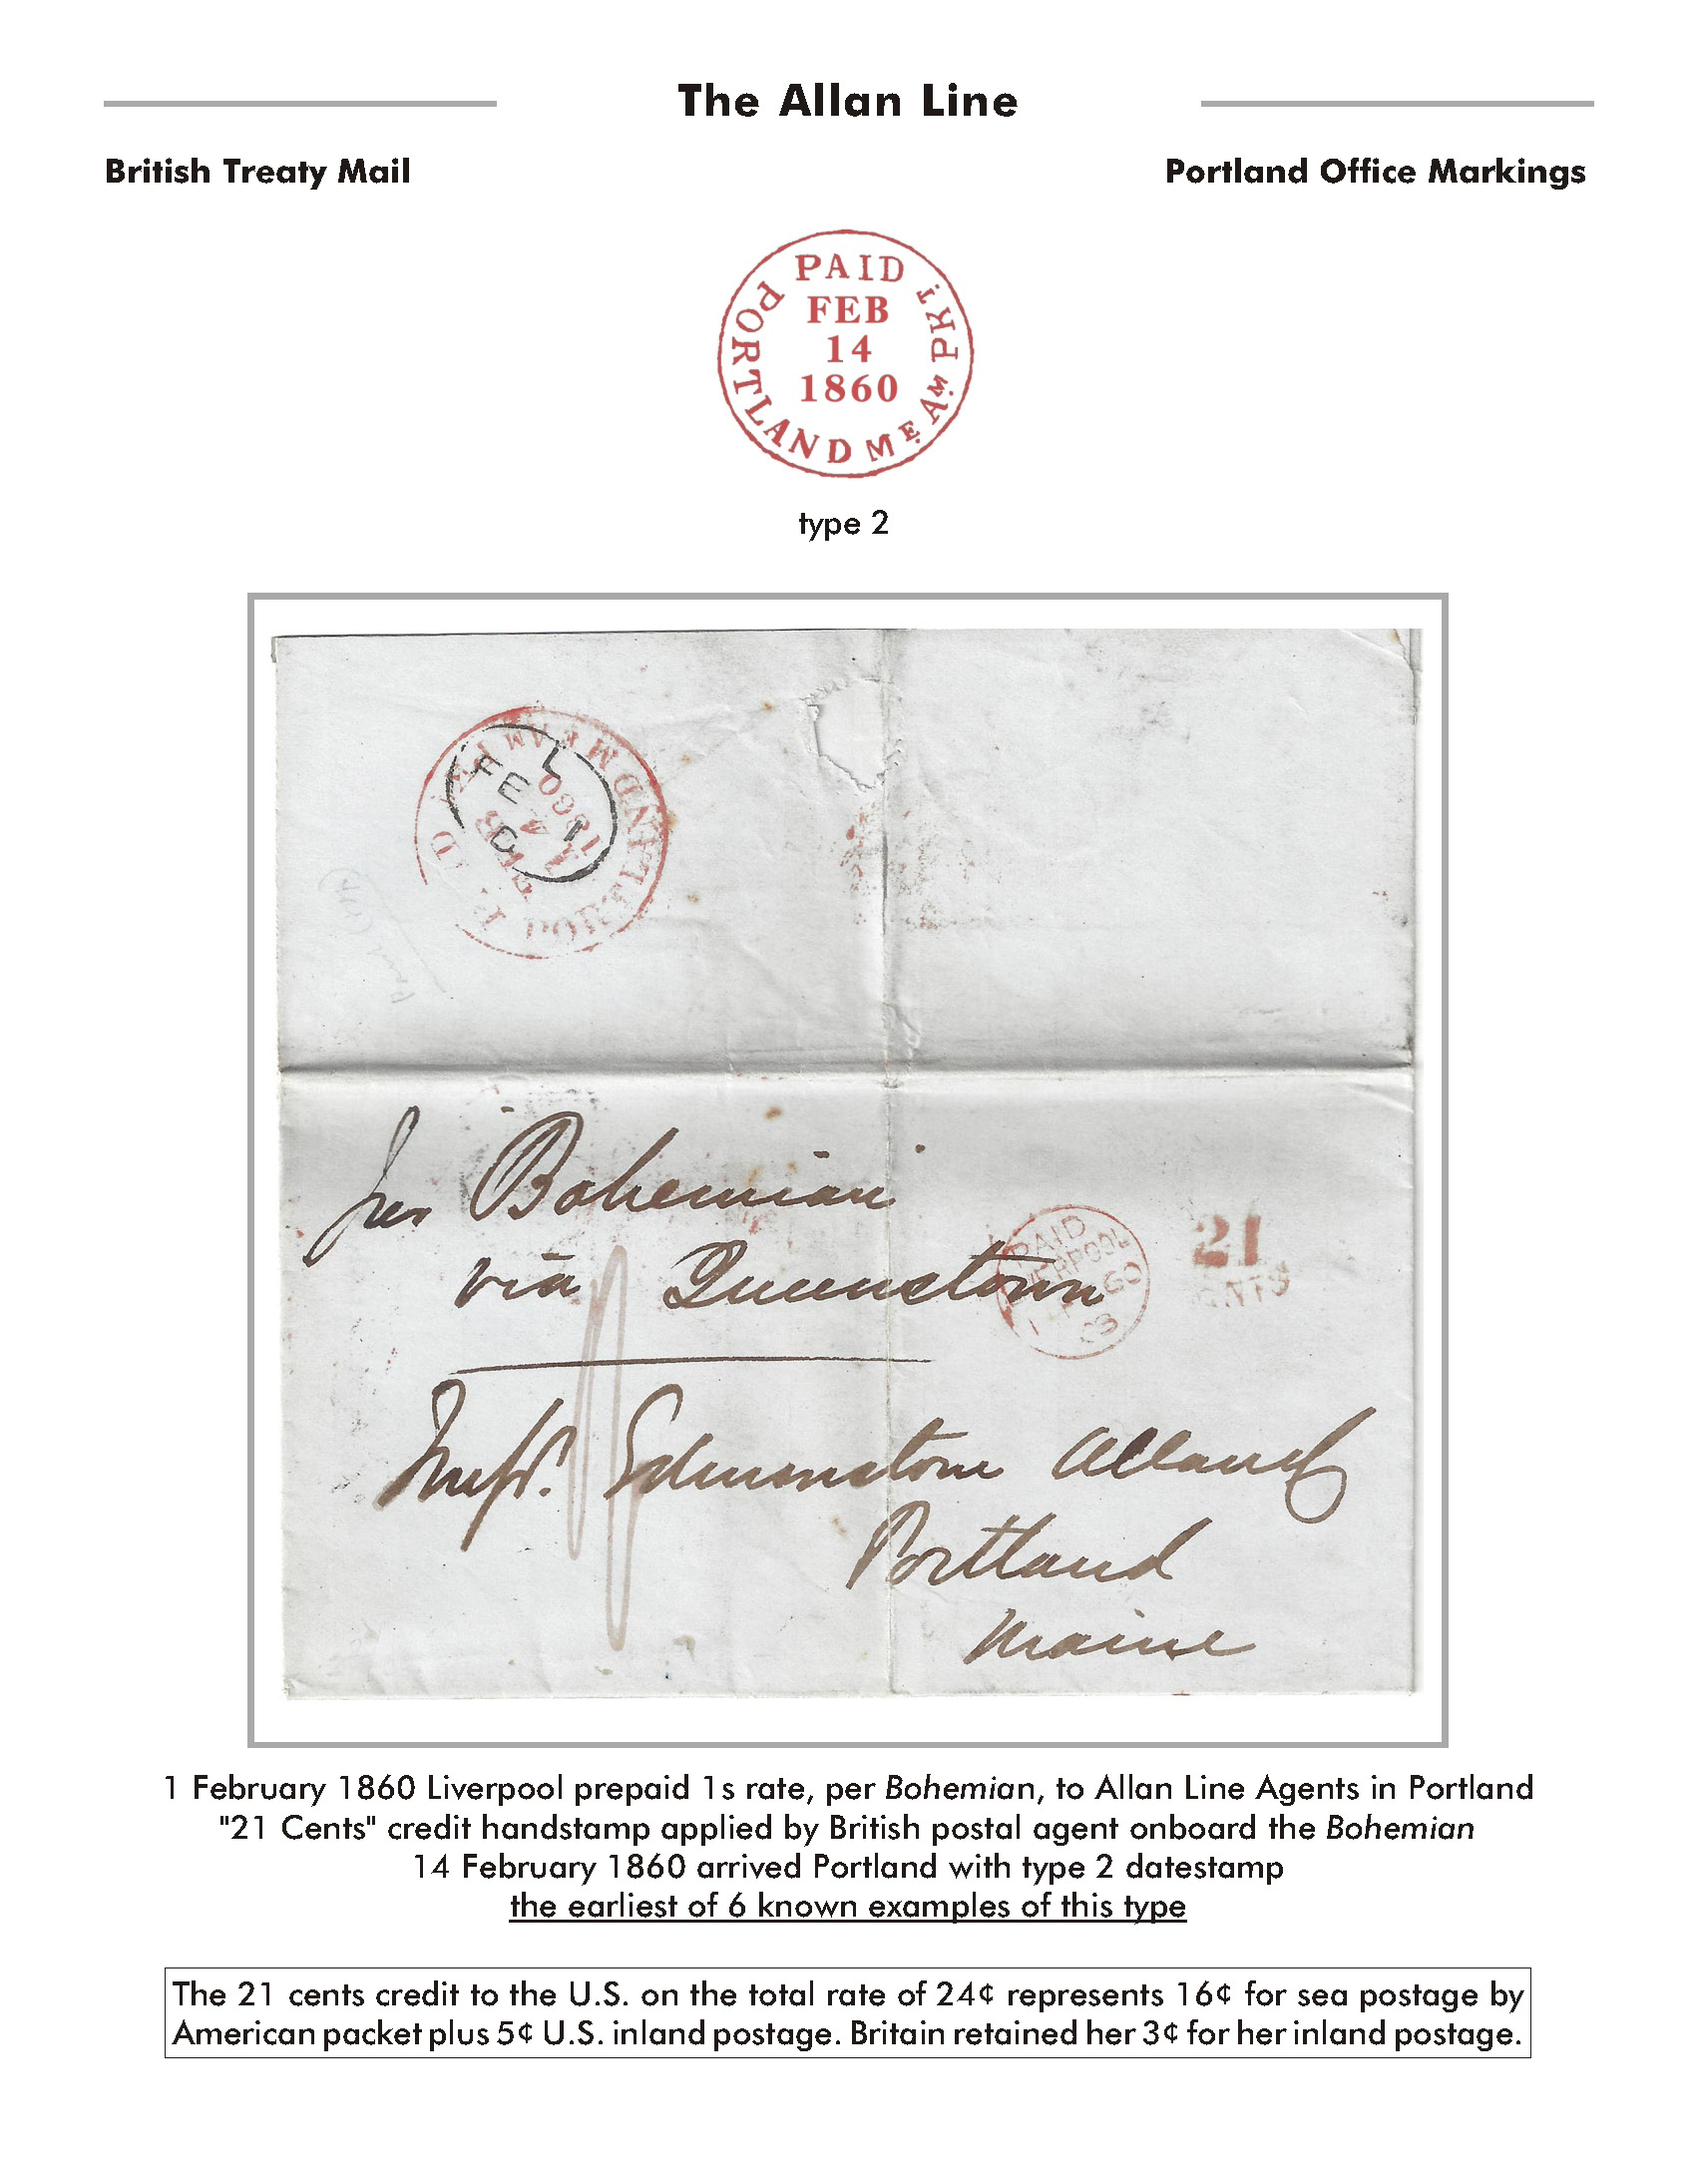 The Allan Line
British Treaty Mail
Portland Office Markings
PAID
PORTLAND ME. AM. PKT.
FEB
14
1860
type 2
PORTLAND ME AM PKT PAID
FEB
14
1860
L
FE 1
C
per Bohemian
via Queenstown
PAID
LIVERPOOL
1 60
21
CENTS
1/
Messrs. Edmonstone Allan & Co
Portland
Maine
1 February 1860 Liverpool prepaid 1s rate, per Bohemian, to Allan Line Agents in Portland
"21 Cents" credit handstamp applied by British postal agent onboard the Bohemian
14 February 1860 arrived Portland with type 2 datestamp
the earliest of 6 known examples of this type
The 21 cents credit to the U.S. on the total rate of 24¢ represents 16¢ for sea postage by
American packet plus 5¢ U.S. inland postage. Britain retained her 3¢ for her inland postage.